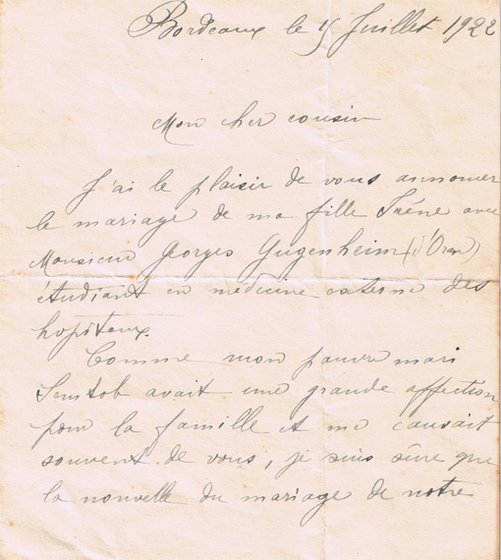 Bordeaux le Juillet 1922
Mon cher cousin
J'ai le plaisir de vous annoncer
le mariage de ma fille Irène avec
Monsieur Georges Gugenheim (d'Oran)
étudiant en médecine externe des
hopitaux.
Comme mon pauvre mari
Semtob avait une grande affection
pour la famille et me causait
souvent de vous, je suis sûre que
la nouvelle du mariage de notre